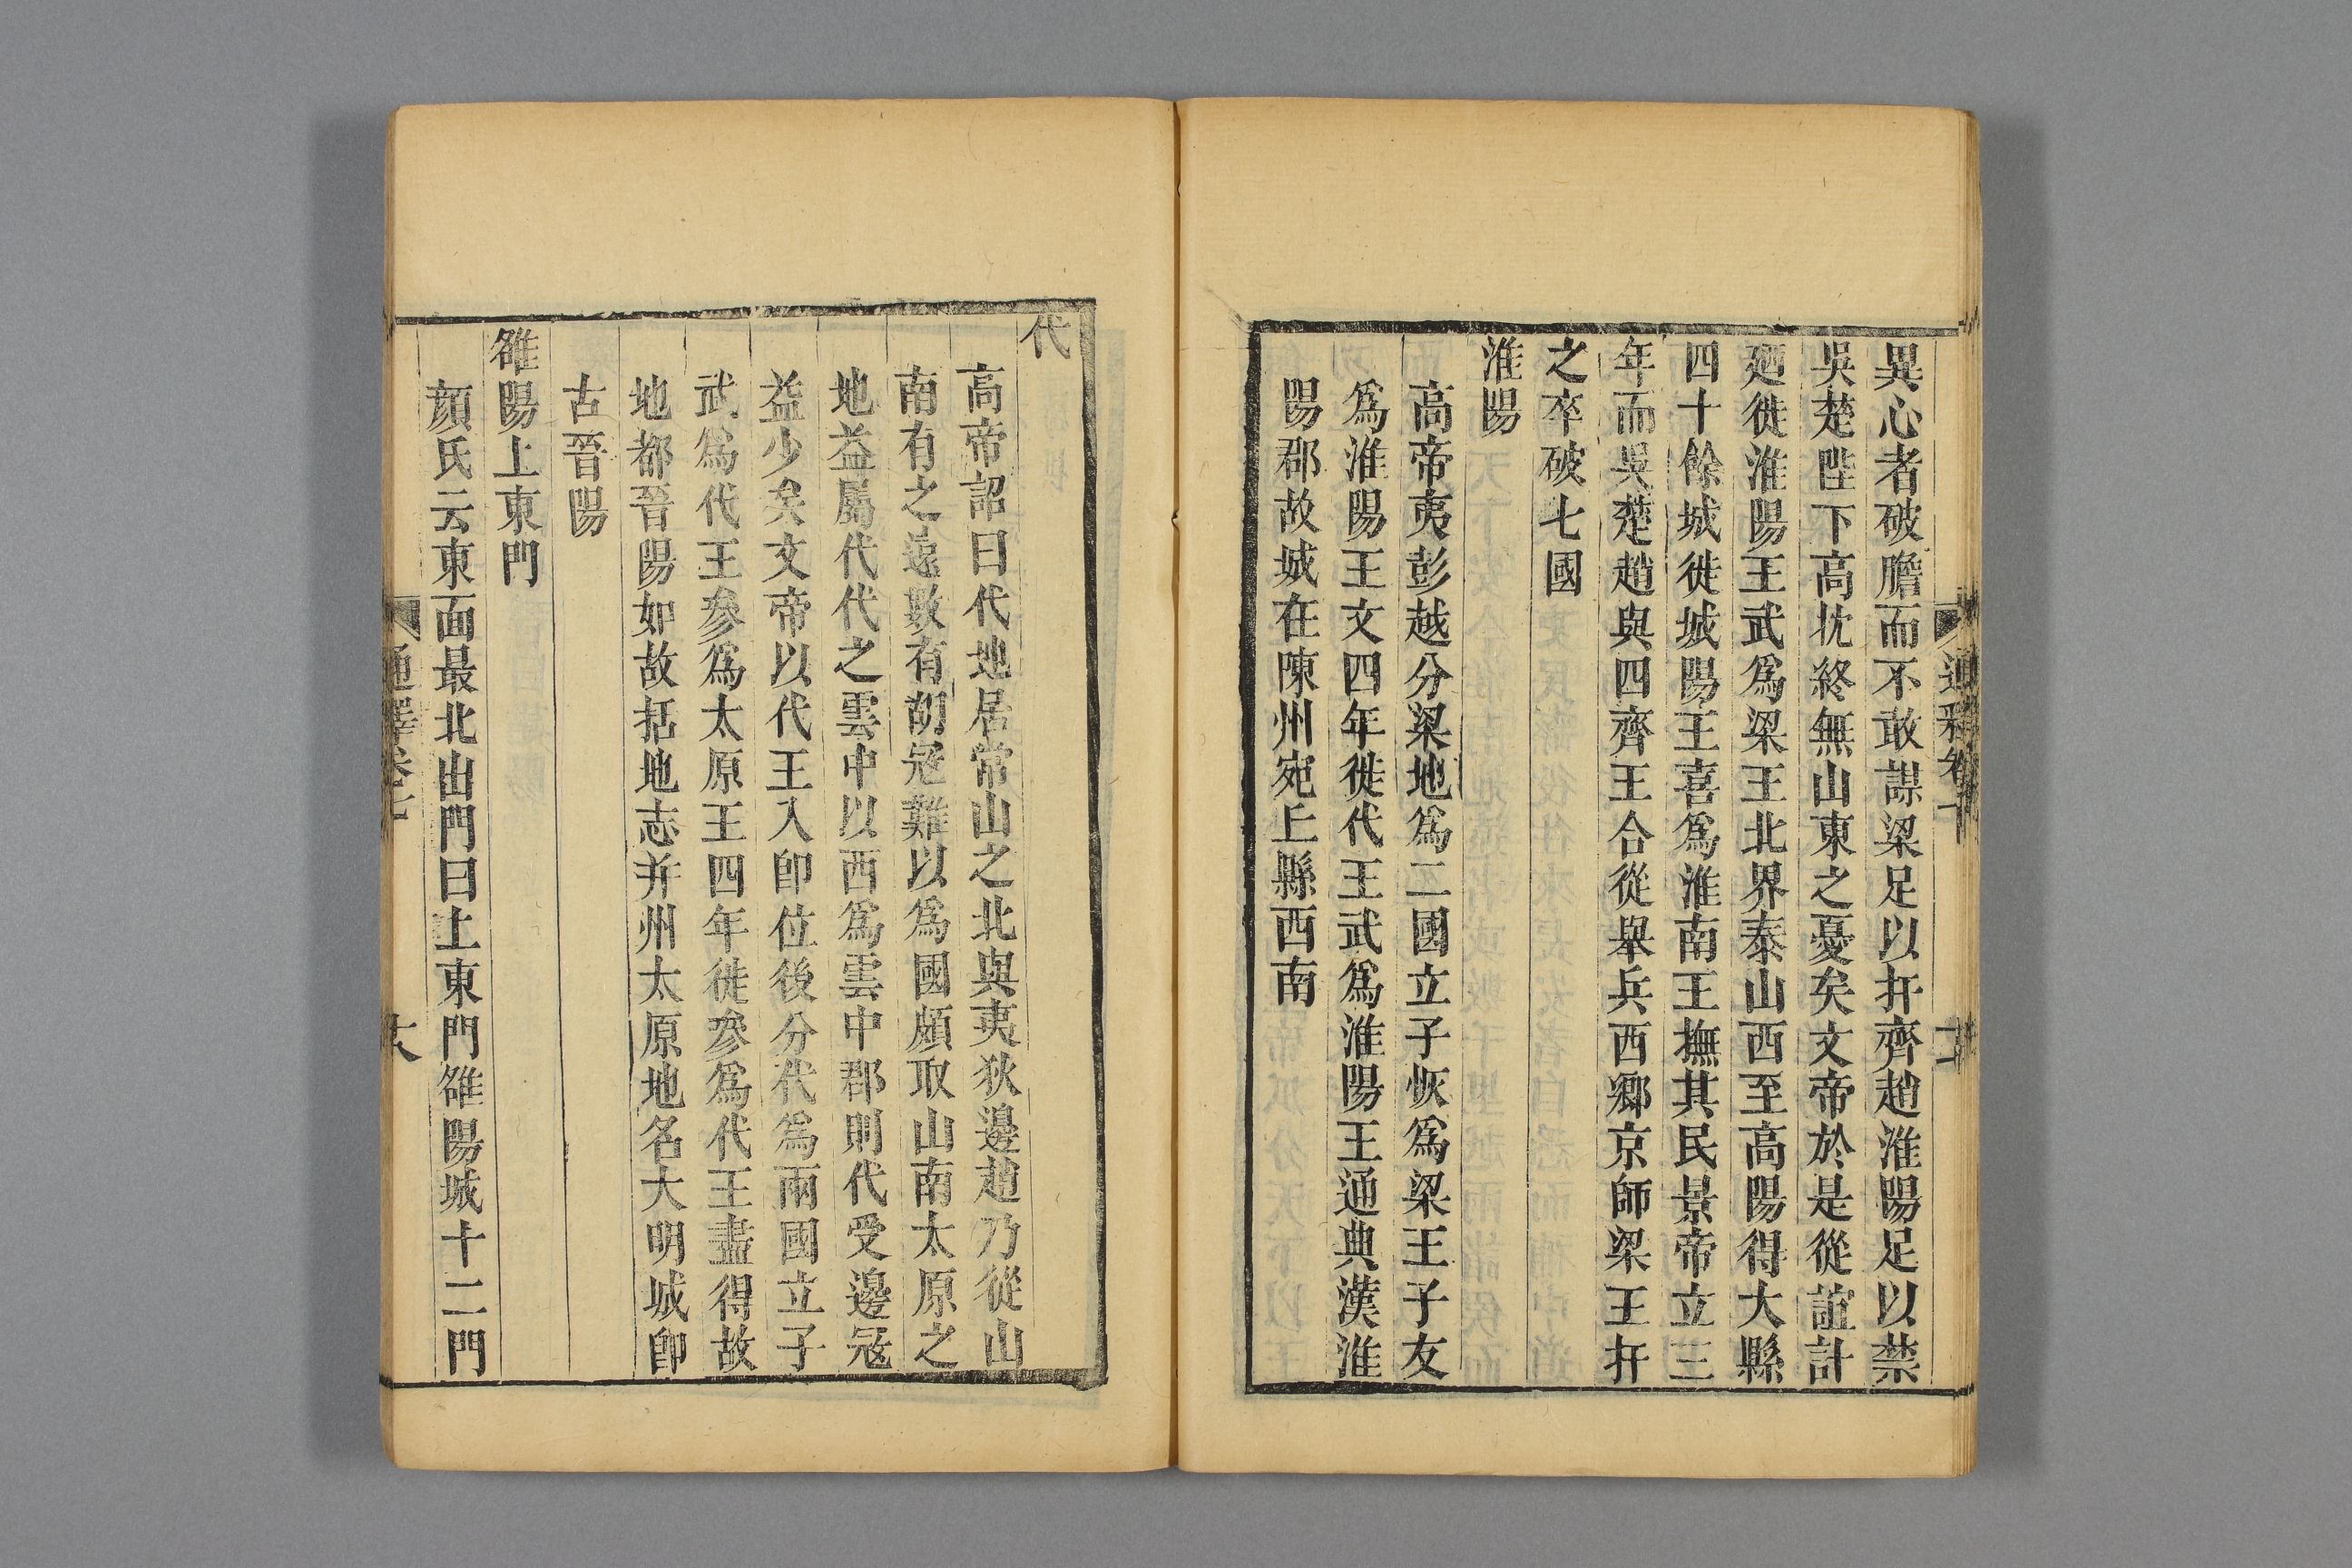 異心者破膽而不敢謀梁足以扞齊趙淮陽足以禁
吳楚陛下高枕終無山東之憂矣文帝於是從誼計
廼徙淮陽王武爲梁王北界泰山西至高陽得大縣
四十餘城徙城陽王喜爲淮南王撫其民景帝立三
年而吳楚趙與四齊王合從舉兵西鄉京師梁王扞
之卒破七國
淮陽
高帝夷彭越分梁地爲二國立子恢爲梁王子友
爲淮陽王文四年徙代王武爲淮陽王通典漢淮
陽郡故城在陳州宛丘縣西南
代
高帝詔曰代地居常山之北與夷狄邊趙乃從山
南有之遠數有胡冦難以爲國頗取山南太原之
地益屬代代之雲中以西爲雲中郡則代受邊冦
益少矣文帝以代王入卽位後分代爲兩國立子
武爲代王參爲太原王四年徙參爲代王盡得故
地都晉陽如故括地志并州太原地名大明城卽
古晉陽
雒陽上東門
顏氏云東面最北出門曰上東門雒陽城十二門
通釋卷十